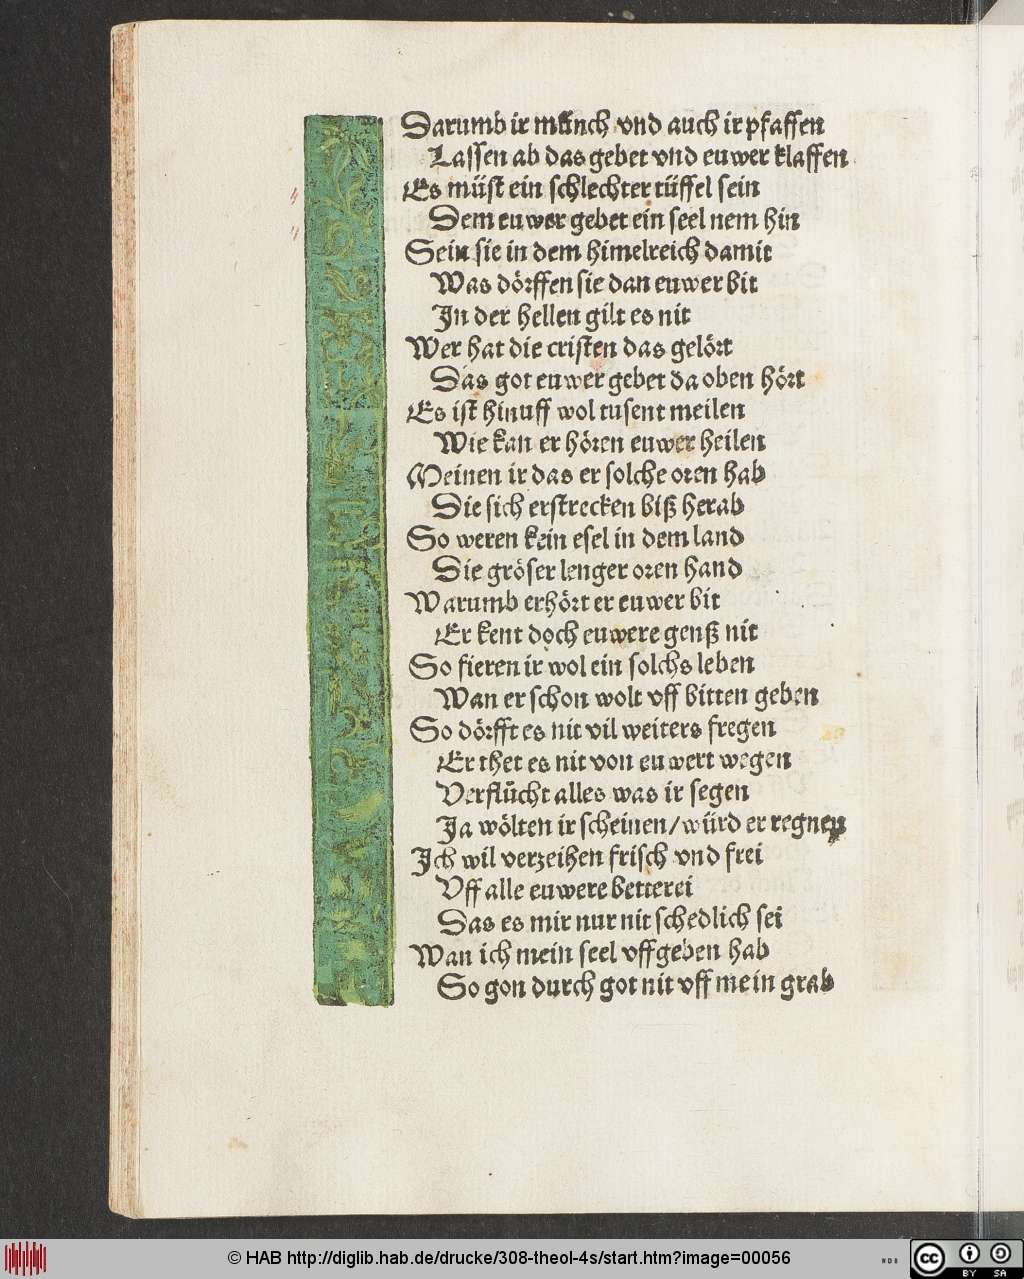 Darumb ir münch vnd auch ir pfaffen
Lassen ab das gebet vnd euwer klaffen
Es müst ein schlechter tüffel sein
Dem euwer gebet ein seel nem hin
Sein sie in dem himelreich damit
Was dörffen sie dan euwer bit
In der hellen gilt es nit
Wer hat die cristen das gelört
Das got euwer gebet da oben hört
Es ist hinuff wol tusent meilen
Wie kan er hören euwer heilen
Meinen ir das er solche oren hab
Die sich erstrecken biß herab
So weren kein esel in dem land
Die gröser lenger oren hand
Warumb erhört er euwer bit
Er kent doch euwere genß nit
So fieren ir wol ein solchs leben
Wan er schon wolt vff bitten geben
So dörfft es nit vil weiters fregen
Er thet es nit von euwert wegen
Verflůcht alles was ir segen
Ja wölten ir scheinen/würd er regnen
Ich wil verzeihen frisch vnd frei
Vff alle euwere betterei
Das es mir nur nit schedlich sei
Wan ich mein seel vffgeben hab
So gon durch got nit vff mein grab
© HAB http://diglib.hab.de/drucke/308-theol-4s/start.htm?image=00056
WDB
cc BY SA